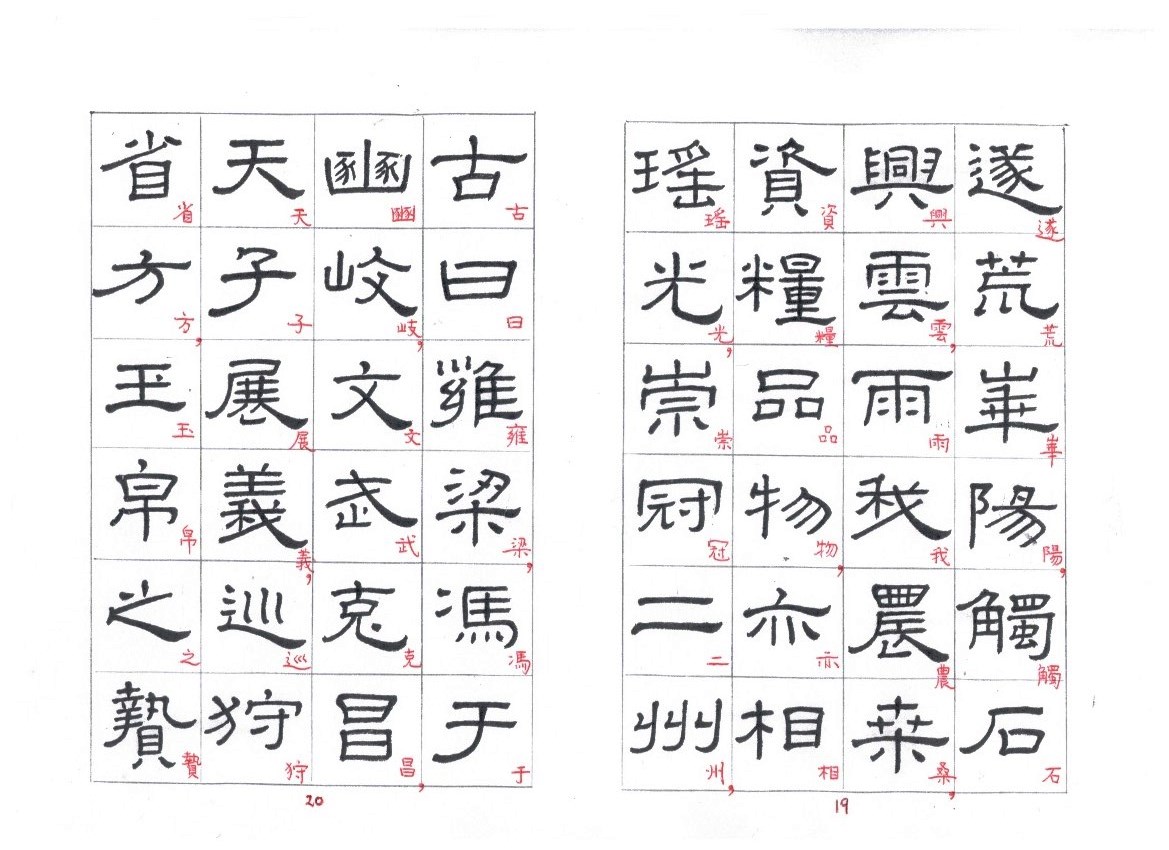 遂荒崋陽觸石
遂荒崋陽,觸石
興雲雨我農桑
興雲,雨我農桑,
資糧品物亦相
資糧品物,亦相
瑤光崇冠二州
瑤光,崇冠二州,
19
古曰雍梁馮于
古曰雍梁,馮于
豳岐文武克昌
豳岐,文武克昌,
天子展義巡狩
天子展義,巡狩
省方玉帛之贄
省方,玉帛之贄
20